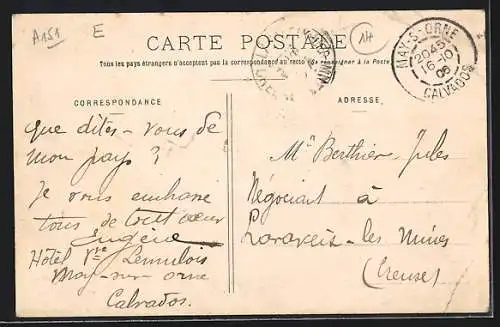 A151
E
14
CARTE POSTALE
Tous les pays étrangers n'acceptent pas la correspondance au recto (se renseigner à la Poste)
MAY-S-ORNE
2045
16-10
06
CALVADOS
CORRESPONDANCE
ADRESSE
que dites-vous de
mon pays ?
Je vous embrasse
tous de tout cœur
Eugène
Hôtel Vve
May-sur-Orne
Calvados.
Mr Berthier Jules
Négociant à
les Mines
(Creuse)